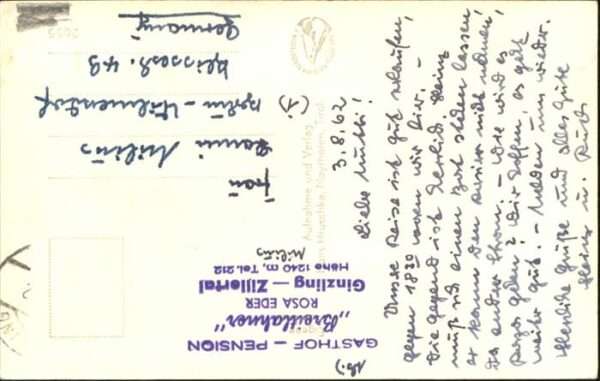 3.8.62
Liebe Mutti!
Unsre Reise ist gut verlaufen,
gegen 18³⁰ waren wir hier. –
Die Gegend ist herrlich. Heinz
muß sich einen Bart stehen lassen,
er kann den nicht nehmen,
da andrer Strom. – Wie wird es
Papa gehen? Wir hoffen, es geht
weiter gut. – Melden uns wieder.
Herzliche Grüße und alles Gute
Heinz u. Ruth
Aufnahme und Verlag
Hruschka, Mayrhofen, Tirol
Frau
Milius
(1) Berlin - Wilmersdorf
49
Germany
GASTHOF – PENSION
„Breitlahner"
ROSA EDER
Ginzling – Zillertal
Höhe 1240 m, Tel. 212
Milius